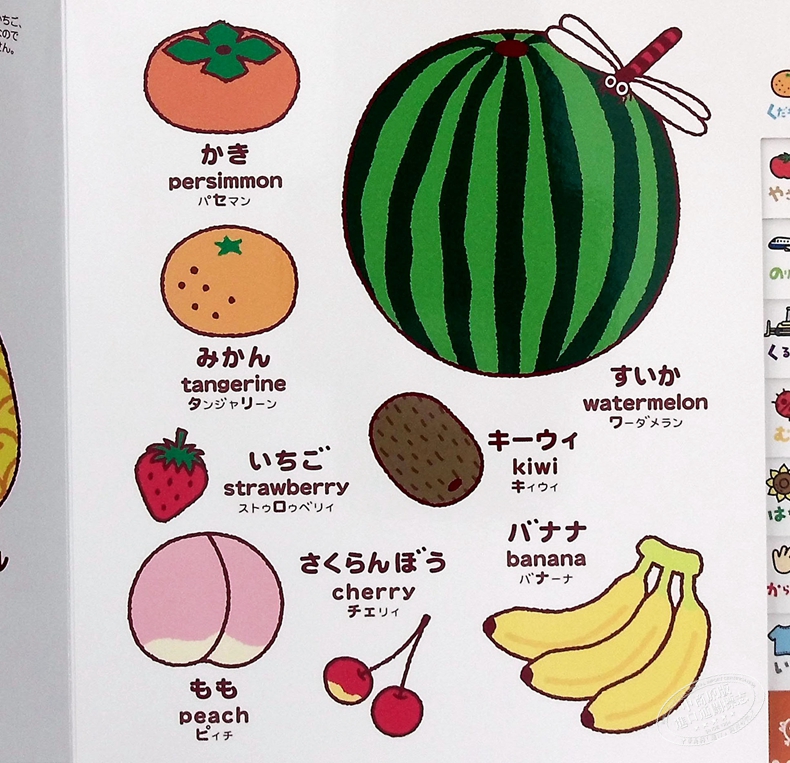 かき
persimmon
パセマン
みかん
tangerine
タンジャリーン
すいか
watermelon
ワーダメラン
いちご
strawberry
ストゥロゥベリィ
キーウィ
kiwi
キィウィ
もも
peach
ピィチ
さくらんぼう
cherry
チェリィ
バナナ
banana
バナーナ